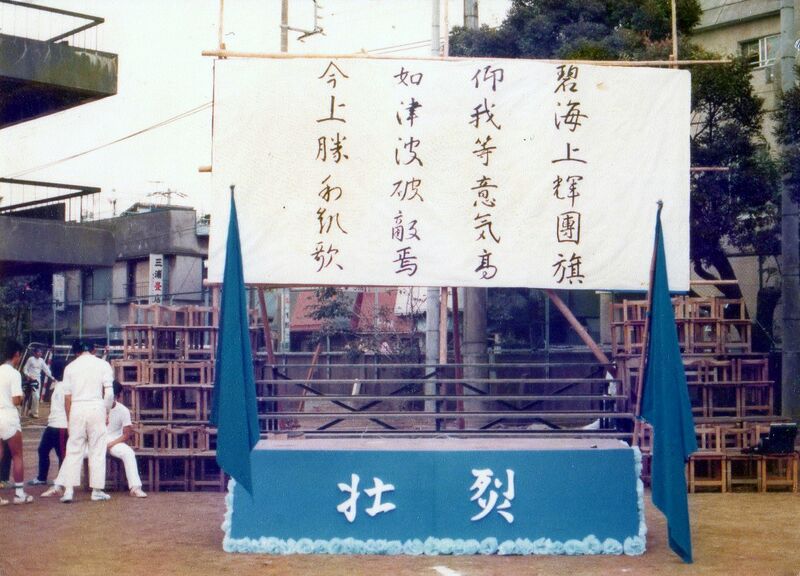 碧海上輝團旗
仰我等意気高
如津波破敵焉
今上勝利凱歌
壮烈
三浦畳店